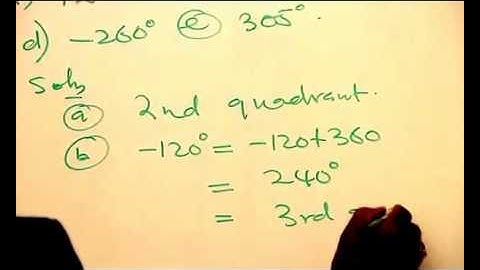 d) -260° e 305°.
Soln
a 2nd quadrant.
b -120° = -120+360
= 240°
= 3rd